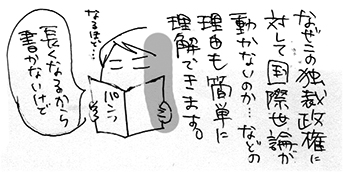 なぜこの独裁政権に
対して国際世論が
動かないのか…などの
理由も簡単に
理解できます。
なるほど…
パンフ
長くなるから
書かないけど